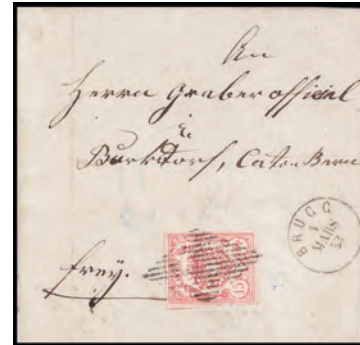 An
Herrn Graber official
in
Burgdorf, Canton Bern
BRUGG
1
MARS
frey.
15